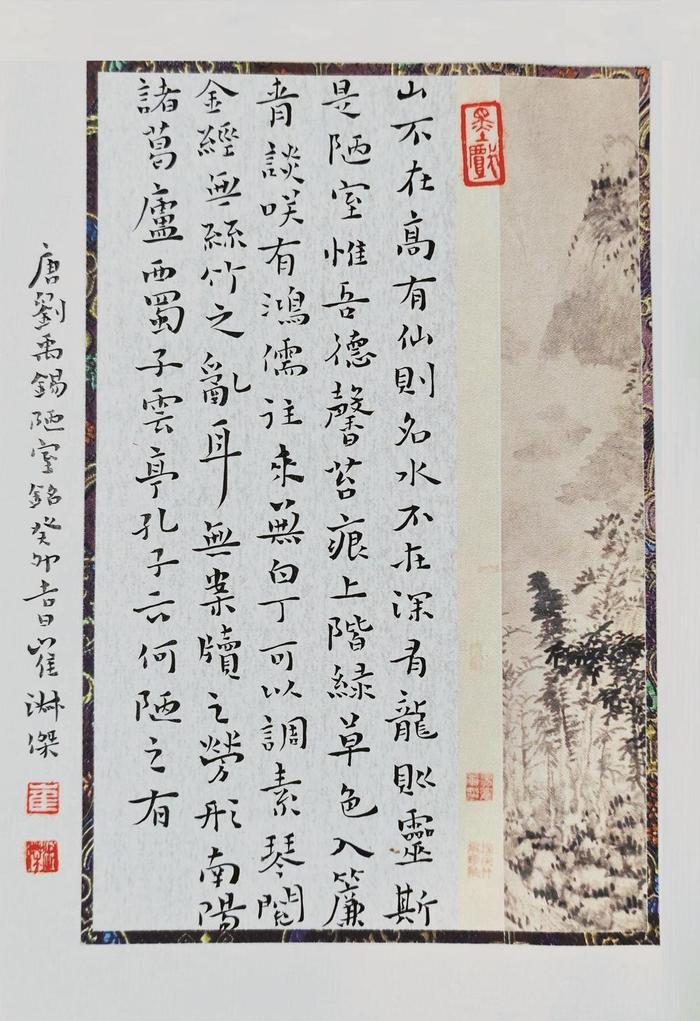 山不在高有仙則名水不在深有龍則靈斯
是陋室惟吾德馨苔痕上階緑草色入簾
青談咲有鴻儒往来無白丁可以調素琴閱
金經無絲竹之亂耳無案牘之勞形南陽
諸葛廬西蜀子雲亭孔子云何陋之有
唐劉禹錫陋室銘癸卯吉日崔淋傑
墨戲